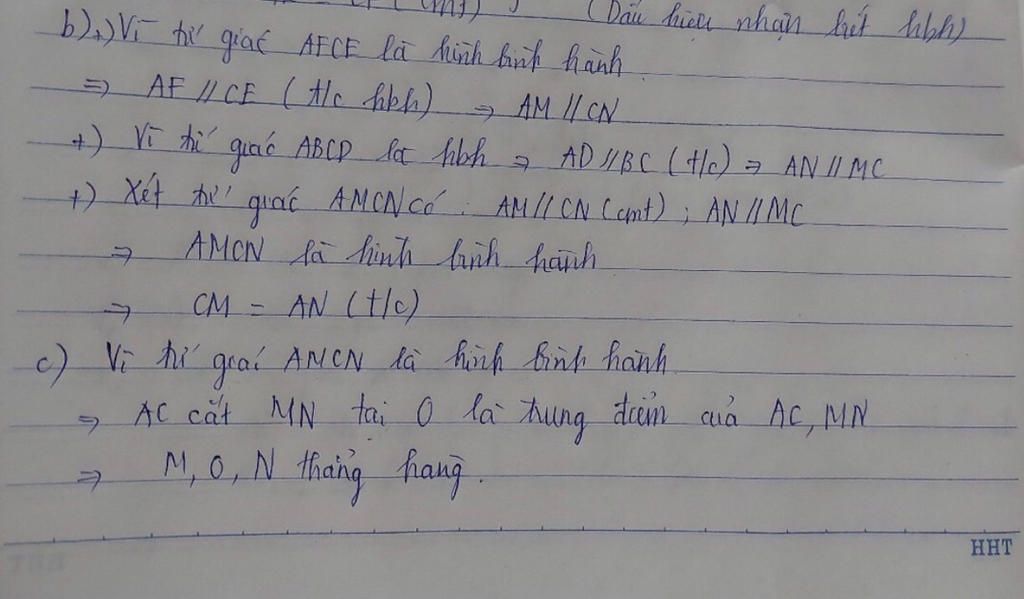 (cmt) (Dấu hiệu nhận biết hbh)
b) +) Vì tứ giác AFCE là hình bình hành.
⇒ AF // CE (t/c hbh) ⇒ AM // CN
+) Vì tứ giác ABCD là hbh ⇒ AD // BC (t/c) ⇒ AN // MC
+) Xét tứ giác AMCN có: AM // CN (cmt); AN // MC
⇒ AMCN là hình bình hành
⇒ CM = AN (t/c)
c) Vì tứ giác AMCN là hình bình hành
⇒ AC cắt MN tại O là trung điểm của AC, MN
⇒ M, O, N thẳng hàng.
HHT